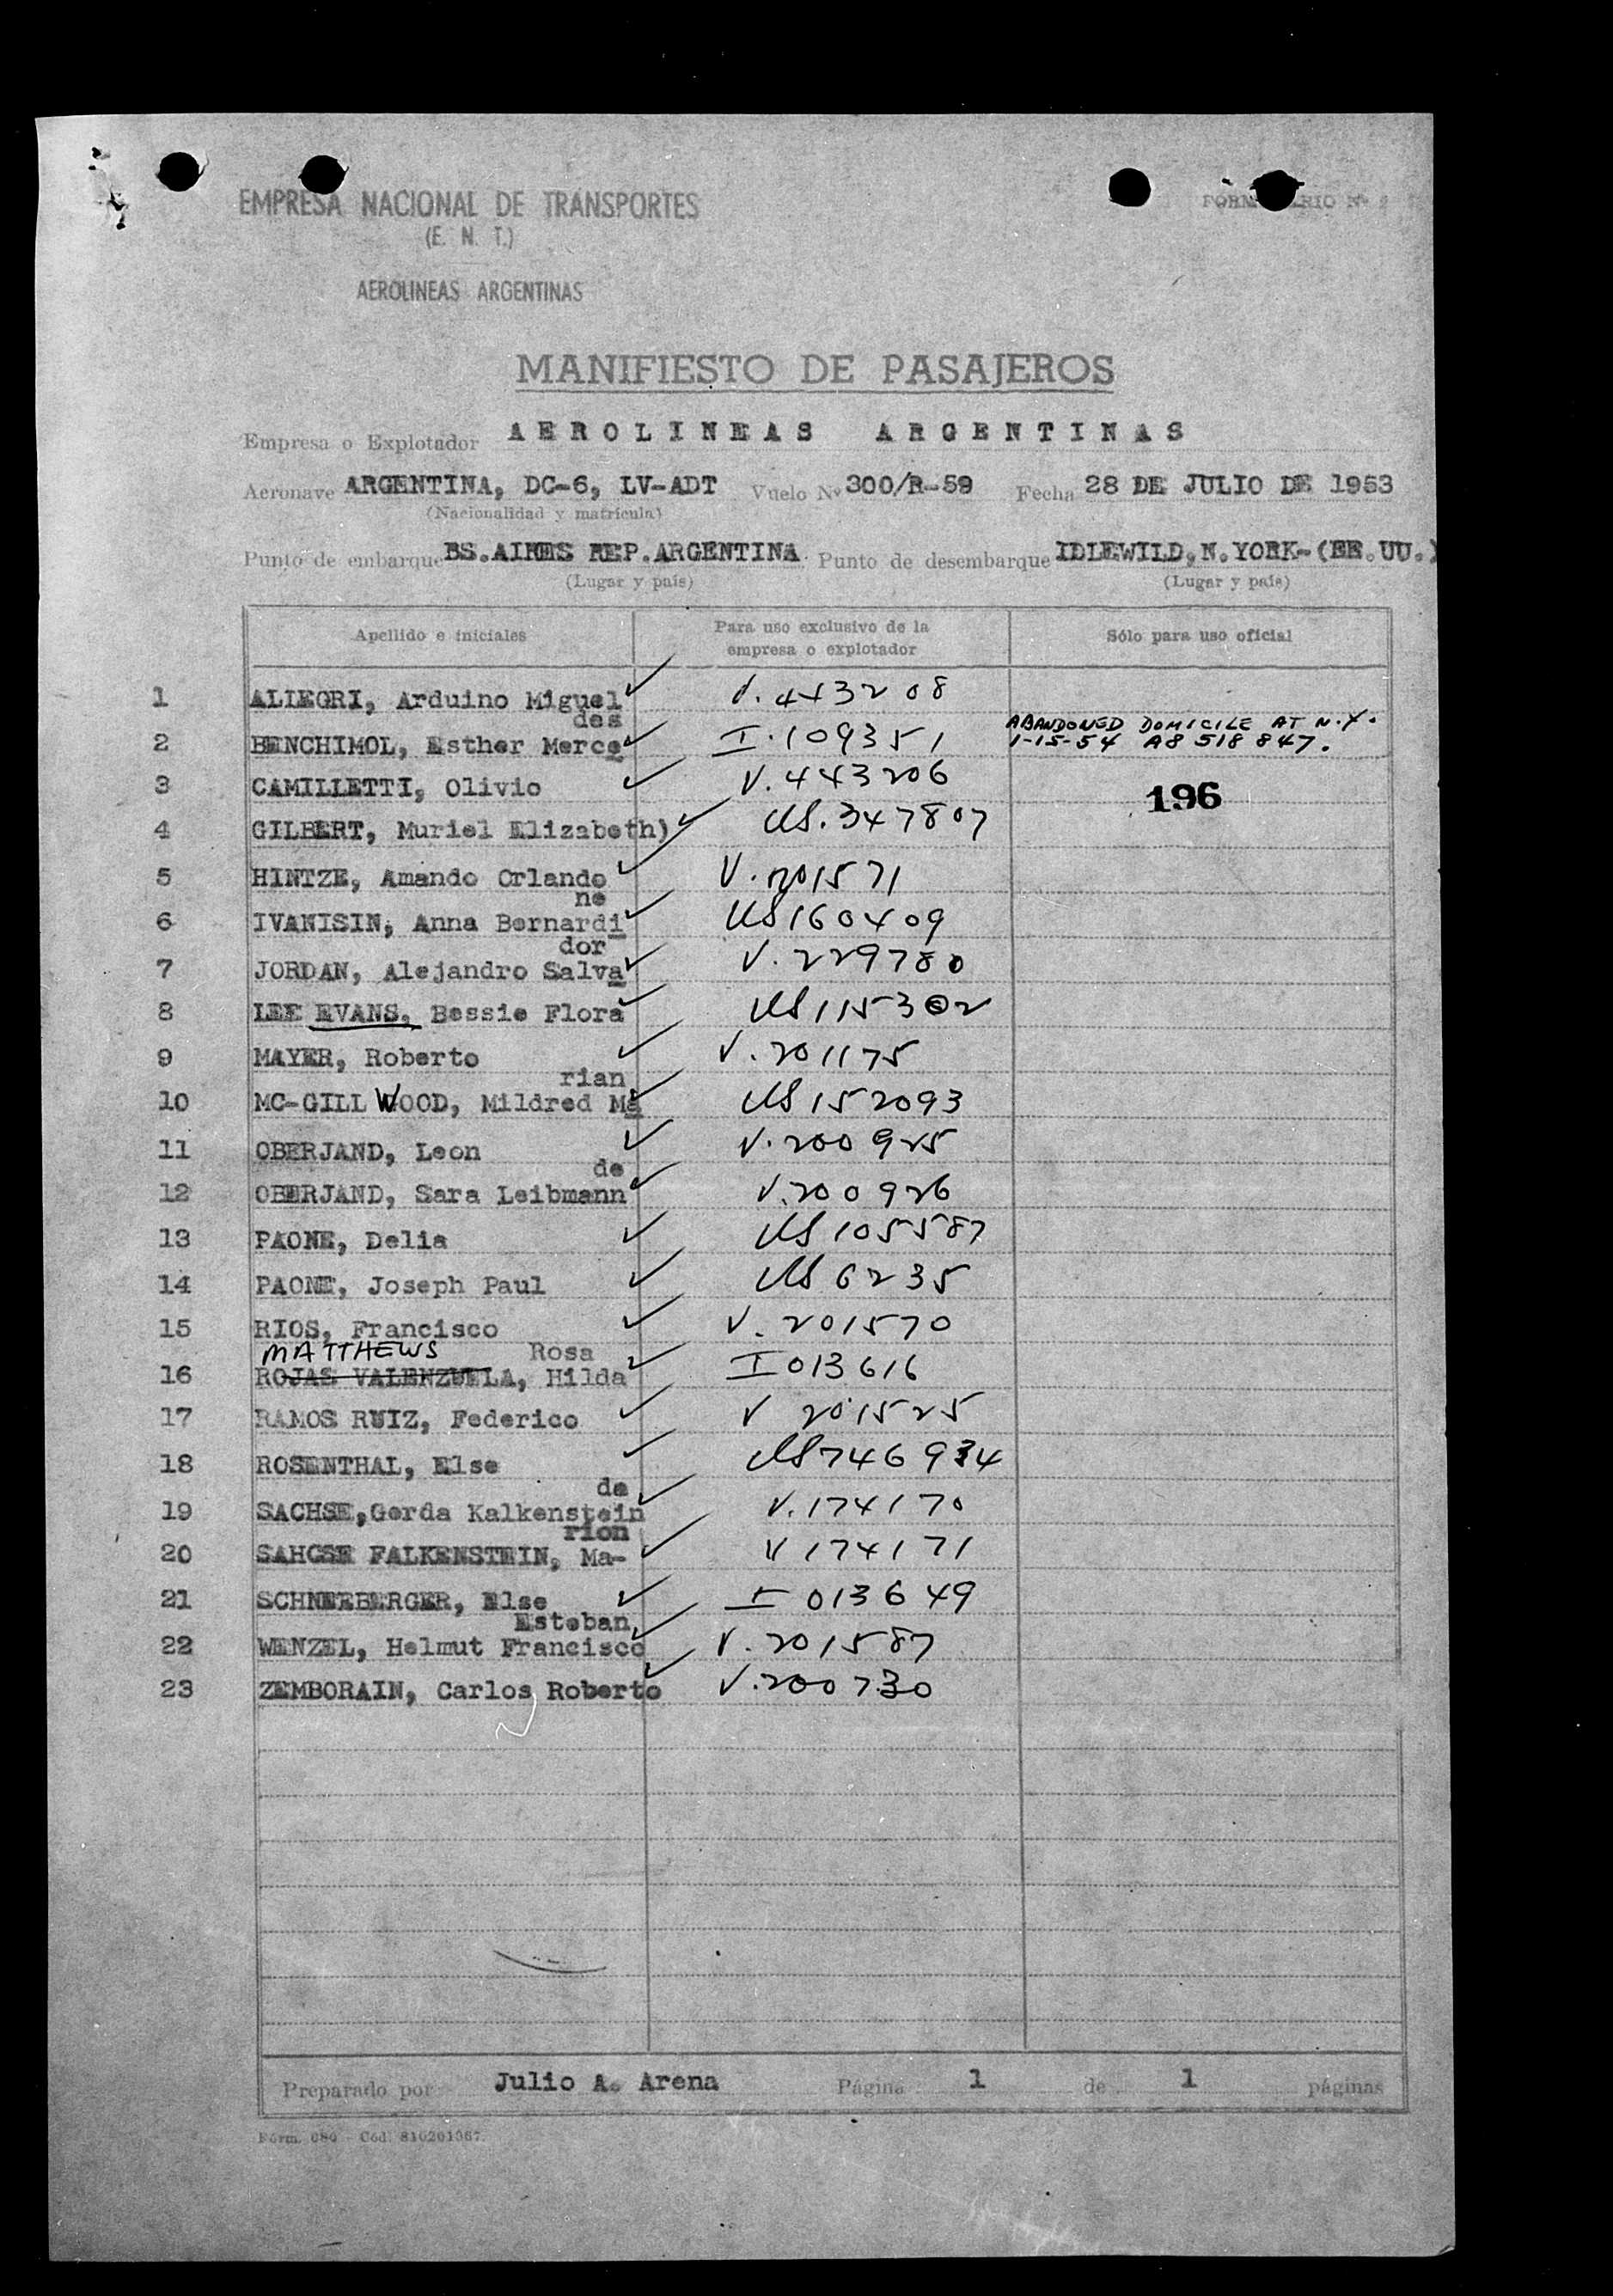 EMPRESA NACIONAL DE TRANSPORTES
(E. N. T.)
AEROLINEAS ARGENTINAS
MANIFIESTO DE PASAJEROS
Empresa o Explotador AEROLINEAS ARGENTINAS
Aeronave ARGENTINA, DC-6, LV-ADT Vuelo Nº 300/R-59 Fecha 28 DE JULIO DE 1953
(Nacionalidad y matrícula)
Punto de embarque BS.AIRES REP.ARGENTINA Punto de desembarque IDLEWILD,N.YORK-(EE.UU.)
(Lugar y país) (Lugar y país)
Apellido e iniciales Para uso exclusivo de la empresa o explotador Sólo para uso oficial
1 ALIEGRI, Arduino Miguel V. 443208
des ABANDONED DOMICILE AT N.Y.
2 BENCHIMOL, Esther Merce I.109351 1-15-54 A8 518 847.
3 CAMILLETTI, Olivio V. 443206
196
4 GILBERT, Muriel Elizabeth) US. 347807
5 HINTZE, Amando Orlando V. 201571
ne
6 IVANISIN, Anna Bernardi US 160409
dor
7 JORDAN, Alejandro Salva V. 229780
8 LEE EVANS, Bessie Flora US 115302
9 MAYER, Roberto V. 201175
rian
10 MC-GILL WOOD, Mildred Ma US 152093
11 OBERJAND, Leon V. 200925
de
12 OBERJAND, Sara Leibmann V. 200926
13 PAONE, Delia US 105587
14 PAONE, Joseph Paul US 6235
15 RIOS, Francisco V. 201570
MATTHEWS Rosa
16 ROJAS VALENZUELA, Hilda I 013616
17 RAMOS RUIZ, Federico V 201525
18 ROSENTHAL, Else US 746934
de
19 SACHSE,Gerda Kalkenstein V. 174170
rion
20 SAHCSE FALKENSTEIN, Ma- V 174171
21 SCHNEEBERGER, Else I 013649
Esteban
22 WENZEL, Helmut Francisco V. 201587
23 ZEMBORAIN, Carlos Roberto V. 200730
Preparado por Julio A. Arena Página 1 de 1 páginas